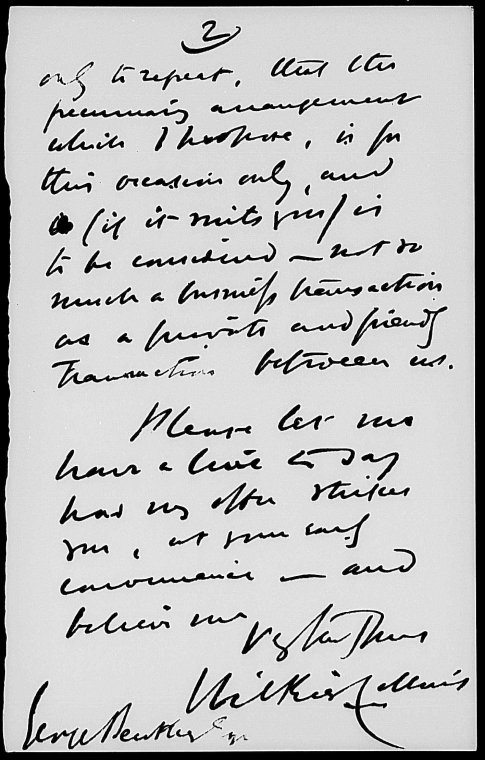 2
only to repeat, that the
pecuniary arrangement
which I propose, is for
this occasion only, and
(if it suits you) is
to be considered — not so
much a business transaction
as a private and friendly
transaction between us.
Please let me
have a line to say
how my offer strikes
you, at your early
convenience — and
believe me
Vy truly Yours
Wilkie Collins
George Bentley Esqr